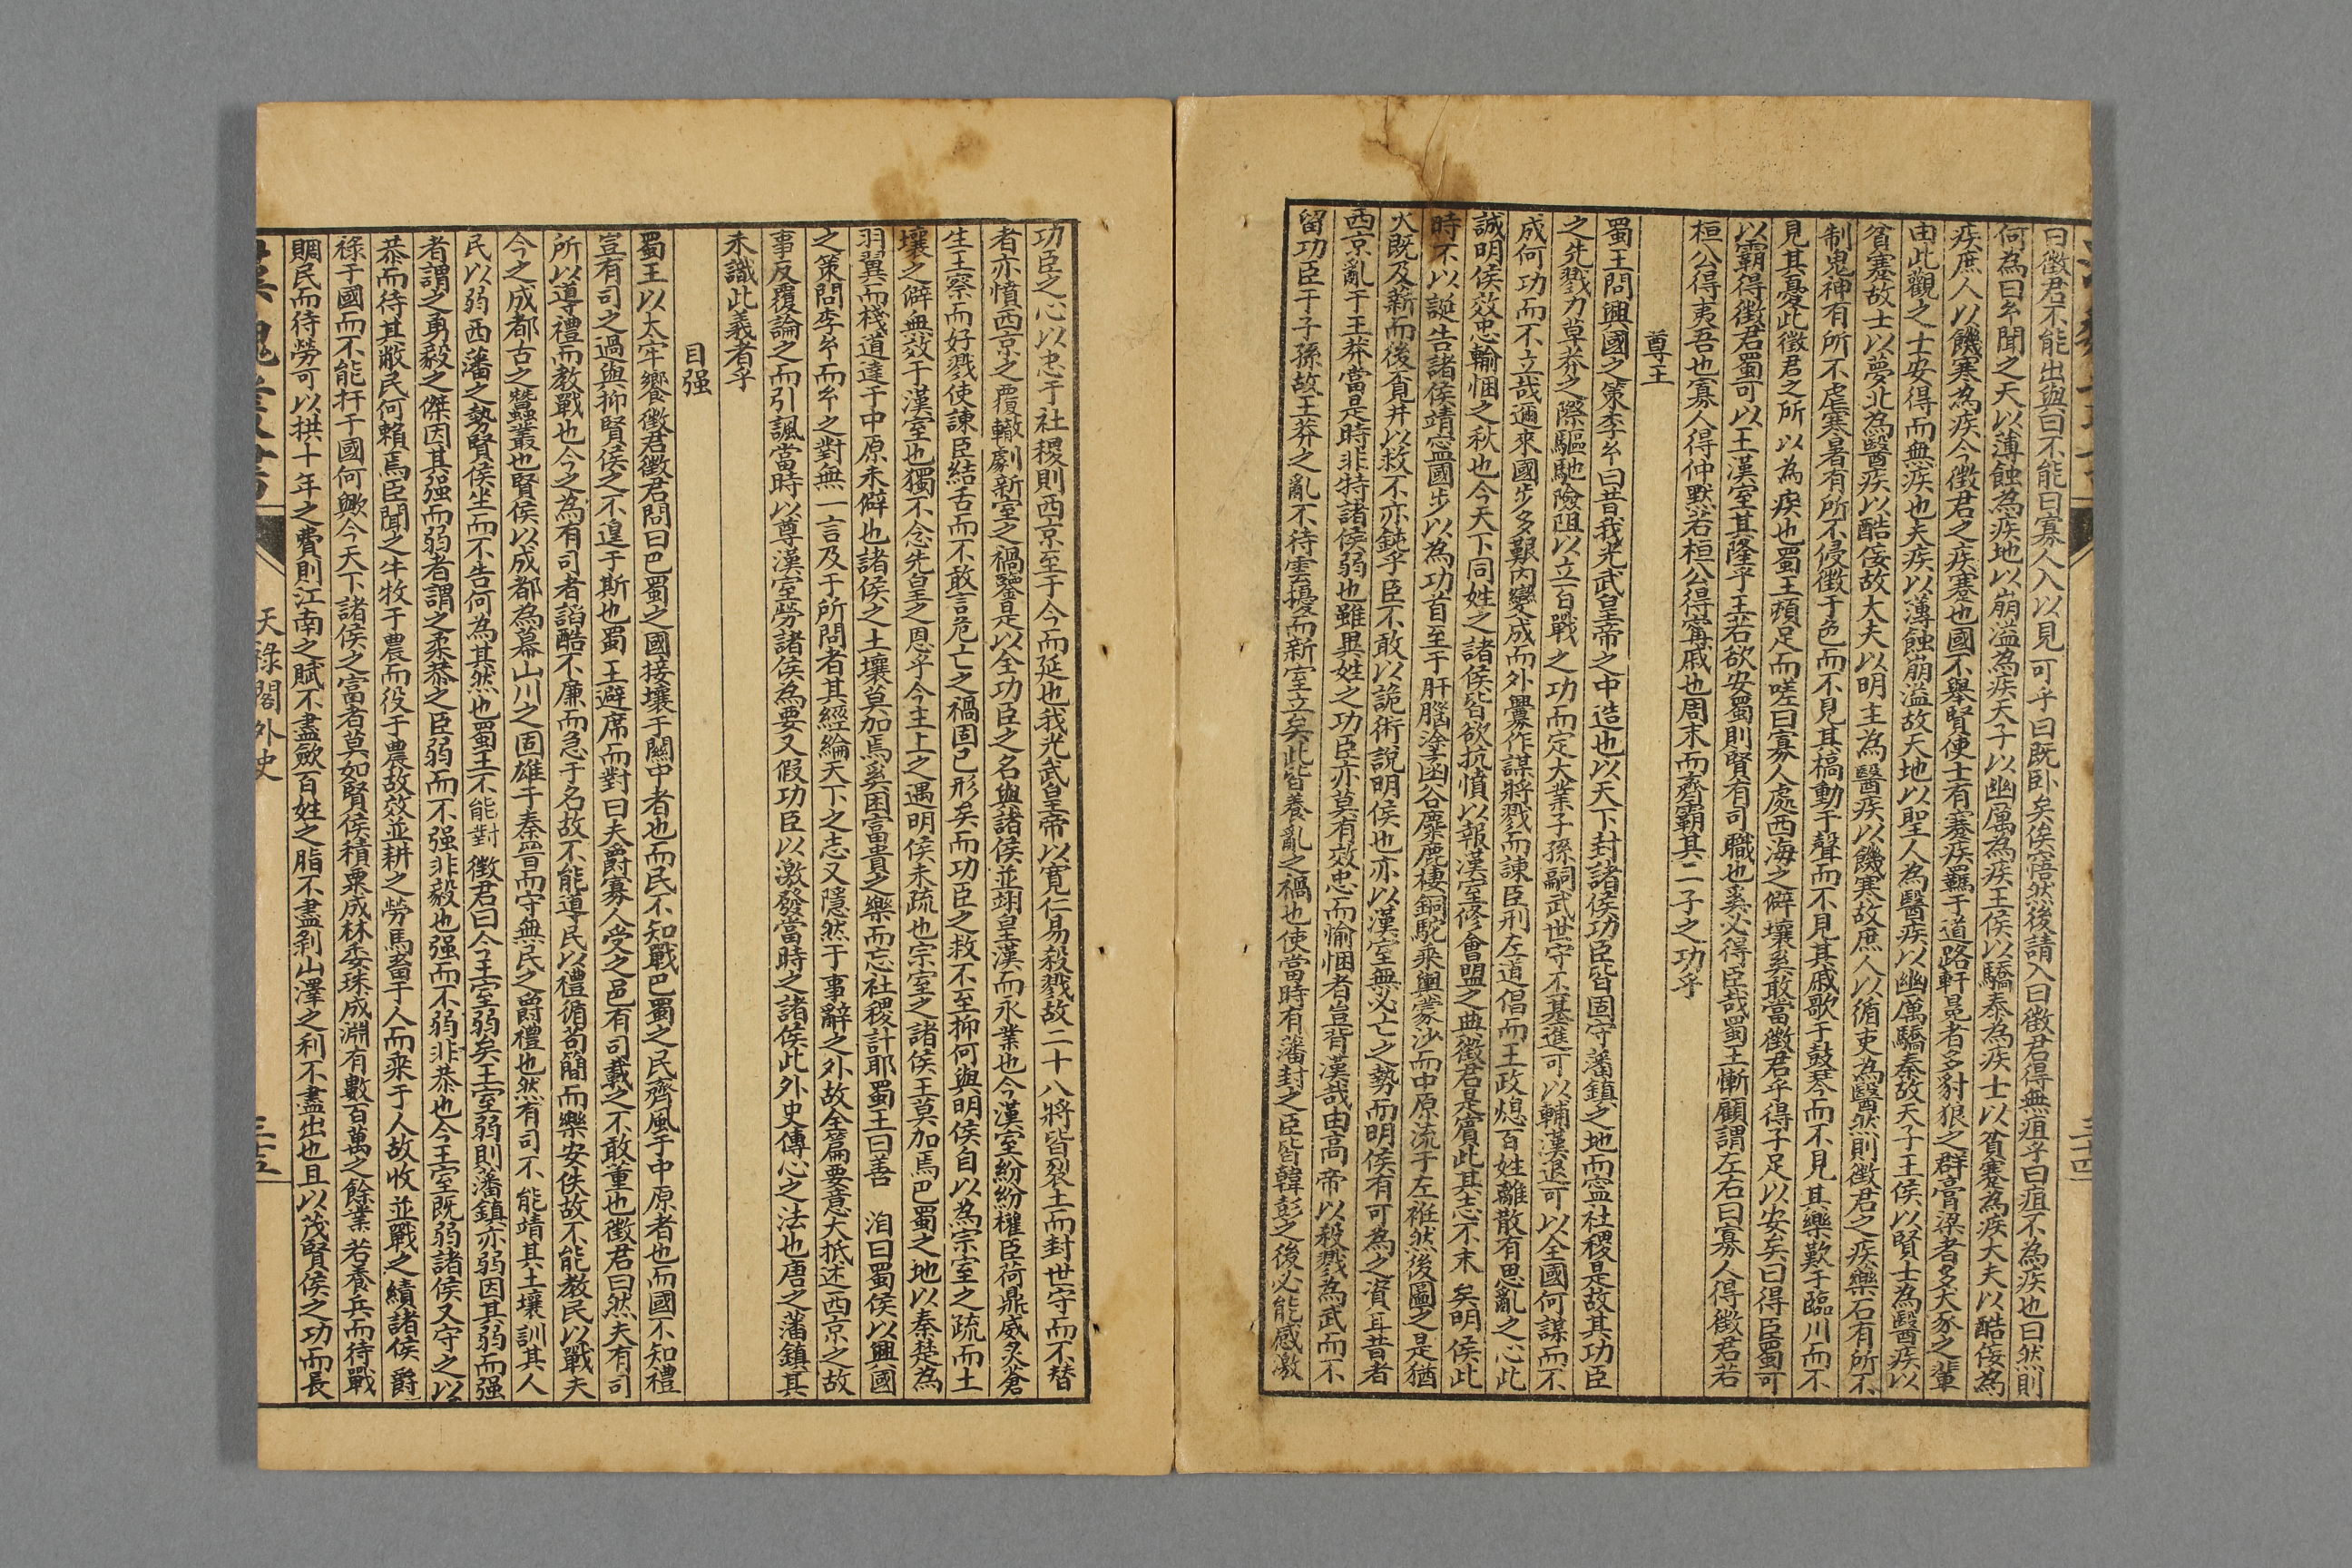 曰徵君不能出與曰不能曰寡人入以見可乎曰既卧矣俟寤然後請入曰徵君得無疽乎曰疽不為疾也曰然則
何為曰乡聞之天以薄蝕為疾地以崩溢為疾天子以幽厲為疾王侯以驕泰為疾士以貧蹇為疾大夫以酷佞為
疾庶人以饑寒為疾今徵君之疾蹇也國不舉賢使士有蹇疾羈于道路軒冕者多豺狼之群膏粱者多犬豕之輩
由此觀之士安得而無疾也夫疾以薄蝕崩溢故天地以聖人為醫疾以幽厲驕泰故天子王侯以賢士為醫疾以
貧蹇故士以夢北為醫疾以酷佞故大夫以明主為醫疾以饑寒故庶人以循吏為醫然則徵君之疾藥石有所不
制鬼神有所不虐寒暑有所不侵徵于色而不見其槁動于聲而不見其戚歌于鼓琴而不見其樂歎于臨川而不
見其憂此徵君之所以為疾也蜀王頓足而嗟曰寡人處西海之僻壤奚敢當徵君乎得子足以安矣曰得臣蜀可
以霸得徵君蜀可以王漢室其隆乎王若欲安蜀則賢有司職也奚必得臣哉蜀王慚顧謂左右曰寡人得徵君若
桓公得夷吾也寡人得仲默若桓公得甯戚也周末而齊霸其二子之功乎
尊王
蜀王問興國之策李乡曰昔我光武皇帝之中造也以天下封諸侯功臣皆固守藩鎮之地而寍社稷是故其功臣
之先戮力草莽之際驅馳險阻以立百戰之功而定大業子孫嗣武世守不基進可以輔漢退可以全國何謀而不
成何功而不立哉邇來國步多艱內變成而外釁作謀將戮而諫臣刑左道倡而王政熄百姓離散有思亂之心此
誠明侯效忠輸悃之秋也今天下同姓之諸侯皆欲抗憤以報漢室修會盟之典徵君是賓此其志不末矣明侯此
時不以誕告諸侯靖寍國步以為功首至于肝腦塗函谷麋鹿棲銅駝乘輿蒙沙而中原流于左袵然後圖之是猶
火既及薪而後負井以救不亦鈍乎臣不敢以詭術說明侯也亦以漢室無必亡之勢而明侯有可為之資耳昔者
西京亂于王莽當是時非特諸侯弱也雖異姓之功臣亦莫有效忠而愉悃者豈背漢哉由高帝以殺戮為武而不
留功臣于子孫故王莽之亂不待雲擾而新室立矣此皆養亂之禍也使當時有藩封之臣皆韓彭之後必能感激
功臣之心以忠于社稷則西京至于今而延也我光武皇帝以寬仁易殺戮故二十八將皆裂土而封世守而不替
者亦憤西京之覆轍劇新室之禍鑒是以全功臣之名與諸侯並翊皇漢而永業也今漢室紛紛權臣荷鼎威炙蒼
生王察而好戮使諫臣結舌而不敢言危亡之禍固已形矣而功臣之救不至抑何與明侯自以為宗室之疏而土
壤之僻無效于漢室也獨不念先皇之恩乎今主上之遇明侯未疏也宗室之諸侯王莫加焉巴蜀之地以秦楚為
羽翼而棧道達于中原未僻也諸侯之土壤莫加焉奚困富貴之樂而忘社稷計耶蜀王曰善 洎曰蜀侯以興國
之策問李乡而乡之對無一言及于所問者其經綸天下之志又隱然于事辭之外故全篇要意大抵述西京之故
事反覆論之而引諷當時以尊漢室勞諸侯為要又假功臣以激發當時之諸侯此外史傳心之法也唐之藩鎮其
未識此義者乎
目强
蜀王以太牢饗徵君徵君問曰巴蜀之國接壤于關中者也而民不知戰巴蜀之民齊風于中原者也而國不知禮
豈有司之過與抑賢侯之不遑于斯也蜀王避席而對曰夫爵寡人受之邑有司載之不敢董也徵君曰然夫有司
所以導禮而教戰也今之為有司者謟酷不廉而急于名故不能導民以禮循苟簡而樂安佚故不能教民以戰夫
今之成都古之蠶叢也賢侯以成都為幕山川之固雄于秦晉而守無民之爵禮也然有司不能靖其土壤訓其人
民以弱西藩之勢賢侯坐而不告何為其然也蜀王不能對徵君曰今王室弱矣王室弱則藩鎮亦弱因其弱而强
者謂之勇毅之傑因其强而弱者謂之柔恭之臣弱而不强非毅也强而不弱非恭也今王室既弱諸侯又守之以
恭而待其敝民何賴焉臣聞之牛牧于農而役于農故效並耕之勞馬畜于人而乘于人故收並戰之績諸侯爵
祿于國而不能扞于國何歟今天下諸侯之富者莫如賢侯積粟成林委珠成淵有數百萬之餘業若養兵而待戰
賙民而待勞可以拱十年之費則江南之賦不盡歛百姓之脂不盡剝山澤之利不盡出也且以茂賢侯之功而長
天祿閣外史
三十五
三十四